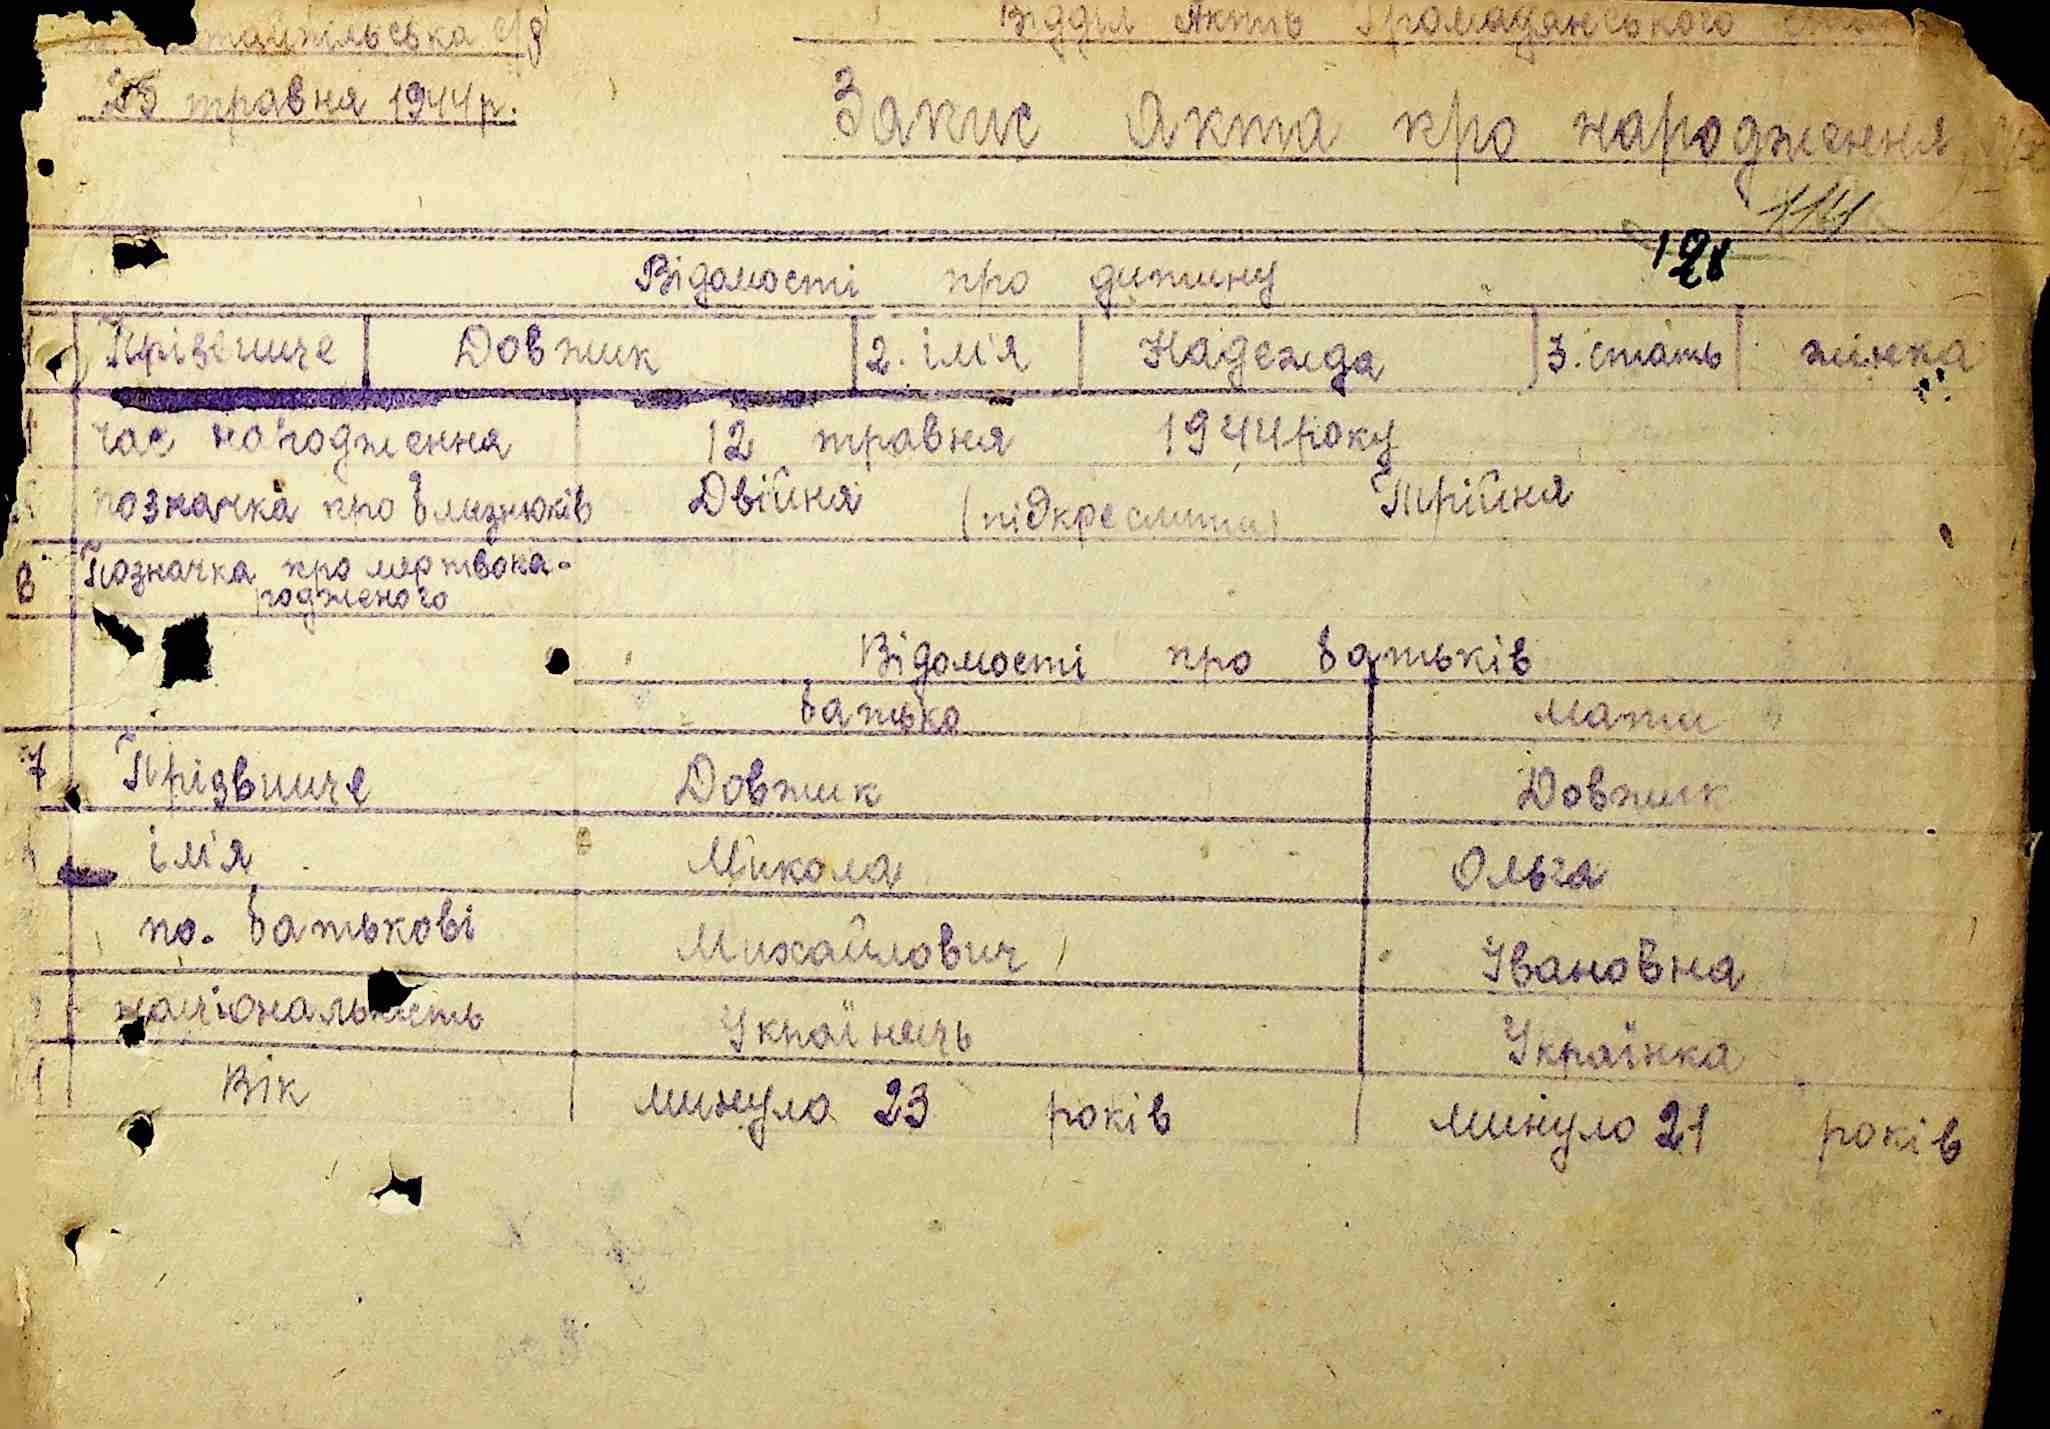 с/р
Відділ Актів Громадянського
25 травня 1944р.
Запис Акта про народження
114
128
Відомості про дитину
Прізвище Довжик 2. ім'я Надежда 3. стать жінка
час народження 12 травня 1944 року
позначка про близнюків Двійня (підкреслити) Трійня
6 Позначка про мертвона-
родженого
Відомості про батьків
батько мати
7 Прізвище Довжик Довжик
ім'я Микола Ольга
по. батькові Михайлович Івановна
національність Українець Українка
Вік минуло 23 років минуло 21 років